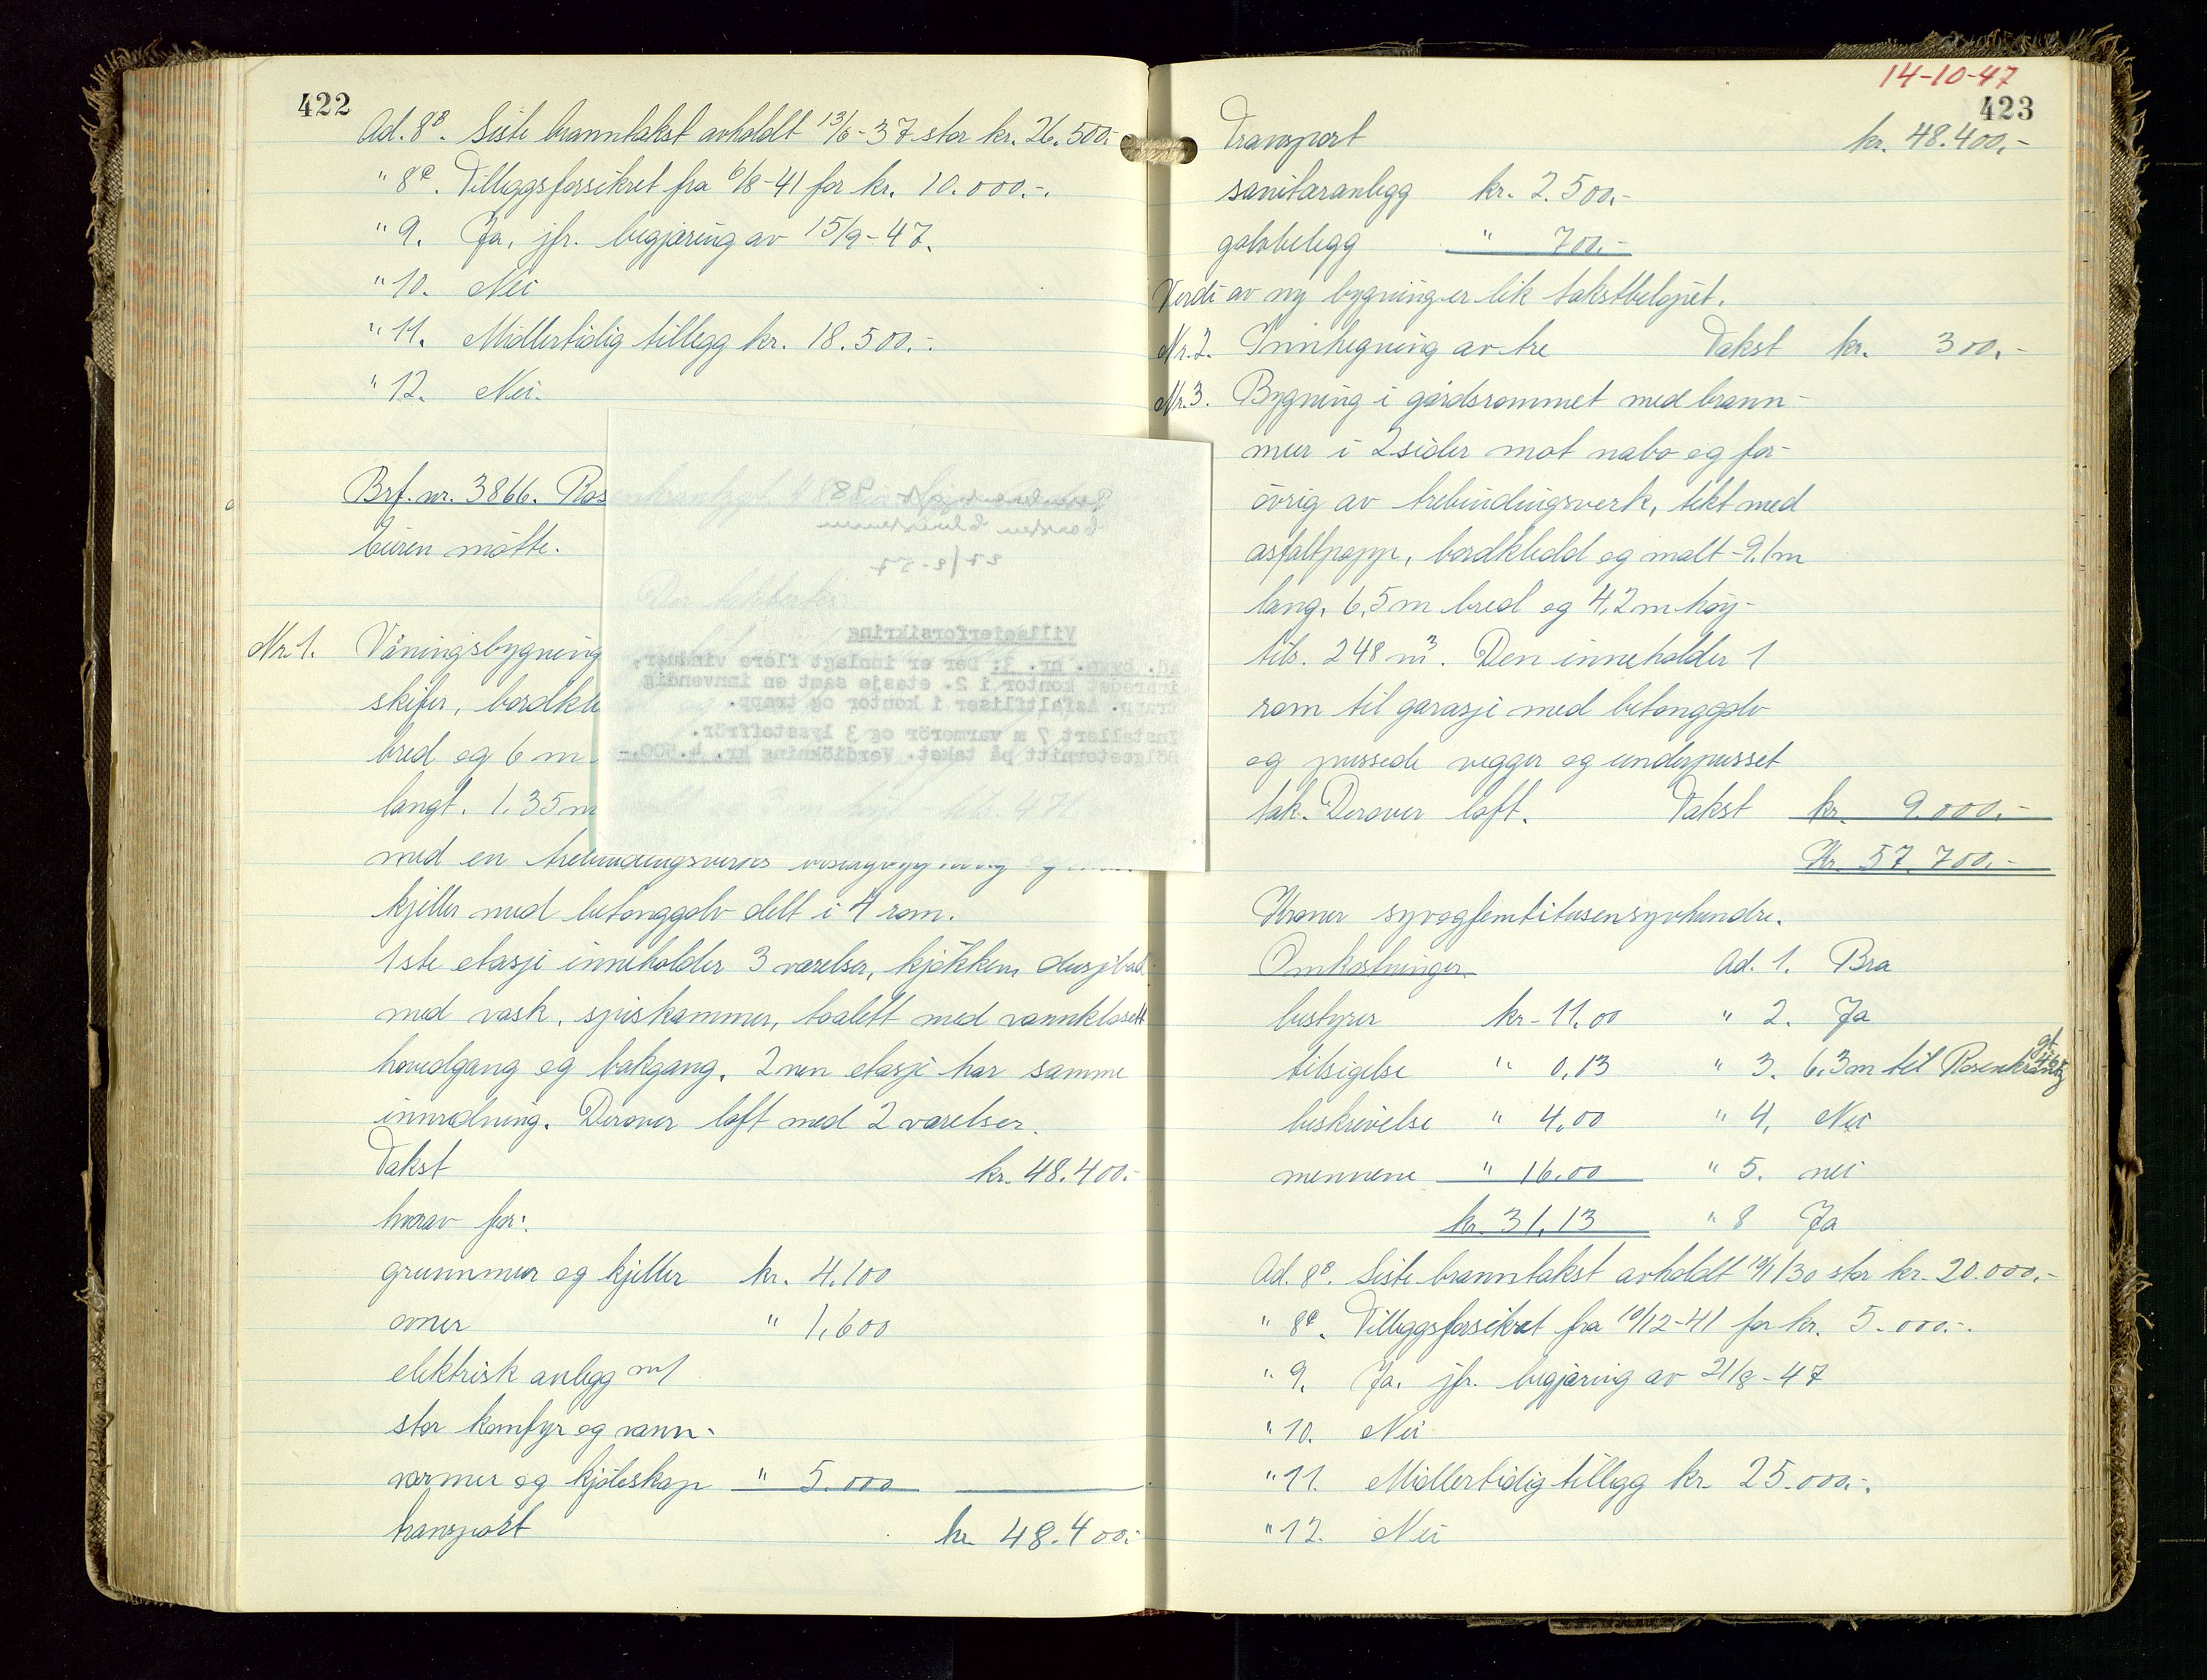 422
Ad. 8B. Siste branntakst avholdt 13/6-37 stor kr. 26.500.-
" 8C. Tilleggsforsikret fra 6/8-41 for kr. 10.000.-.
" 9. Ja, jfr. begjæring av 15/9-47.
" 10. Nei
" 11. Midlertidig tillegg kr. 18.500.-.
" 12. Nei.
Brf. nr. 3866. Rosenkrantzgt.
Eieren møtte.
Nr. 1. Våningsbygning
skifer, bordkle
bred og 6 m
langt. 1,35 m
med en trebindingsverks
kjeller med betonggolv delt i 4 rom.
1ste etasje inneholder 3 værelser, kjøkken, dusjbad
med vask, spiskammer, toalett med vannklosett
hovedgang og bakgang. 2nen etasje har samme
innredning. Derover loft med 2 værelser.
Takst kr. 48.400.-
hvorav for:
grunnmur og kjeller kr. 4.100
ovner " 1.600
elektrisk anlegg m/
stor komfyr og vann-
varmer og kjøleskap " 5.000
transport kr 48.400.-
Villaeierforsikring
ad. bygn. nr. 3: Der er innlagt flere vinduer,
innredet kontor i 2. etasje samt en innvendig
trapp. Asfaltfliser i kontor og trapp.
Installert 7 m varmerör og 3 lysstoffrör.
Bölgeeternitt på taket. Verdiökning kr. 4.500,-
14-10-47
423
Transport kr. 48.400,-
sanitæranlegg kr. 2.500,-
golvbelegg " 700.-
Verdi av ny bygning er lik takstbeløpet.
Nr. 2. Innhegning av tre Takst kr. 300,-
Nr. 3. Bygning i gårdsrommet med brann-
mur i 2 sider mot nabo og for-
øvrig av trebindingsverk, tekt med
asfaltpapp, bordkledd og malt - 9,1 m
lang, 6,5 m bred og 4,2 m høy -
tils. 248 m3. Den inneholder 1
rom til garasje med betonggolv
og pussede vegger og underpusset
tak. Derover loft. Takst kr. 9.000,-
Kr. 57.700,-
Kroner syvogfemtitusensyvhundre.
Omkostninger Ad. 1. Bra
bestyrer kr. 11,00 " 2. Ja
tilsigelse " 0,13 " 3. 6,3 m til Rosenkrantz gt.
beskrivelse " 4,00 " 4. Nei
mennene " 16,00 " 5. nei
kr. 31,13 " 8 Ja
Ad. 8B. Siste branntakst avholdt /30 stor kr. 20.000,-
" 8C. Tilleggsforsikret fra 10/12-41 for kr. 5.000.-.
" 9. Ja. jfr. begjæring av 21/8-47
" 10. Nei
" 11. Midlertidig tillegg kr. 25.000.-.
" 12. Nei